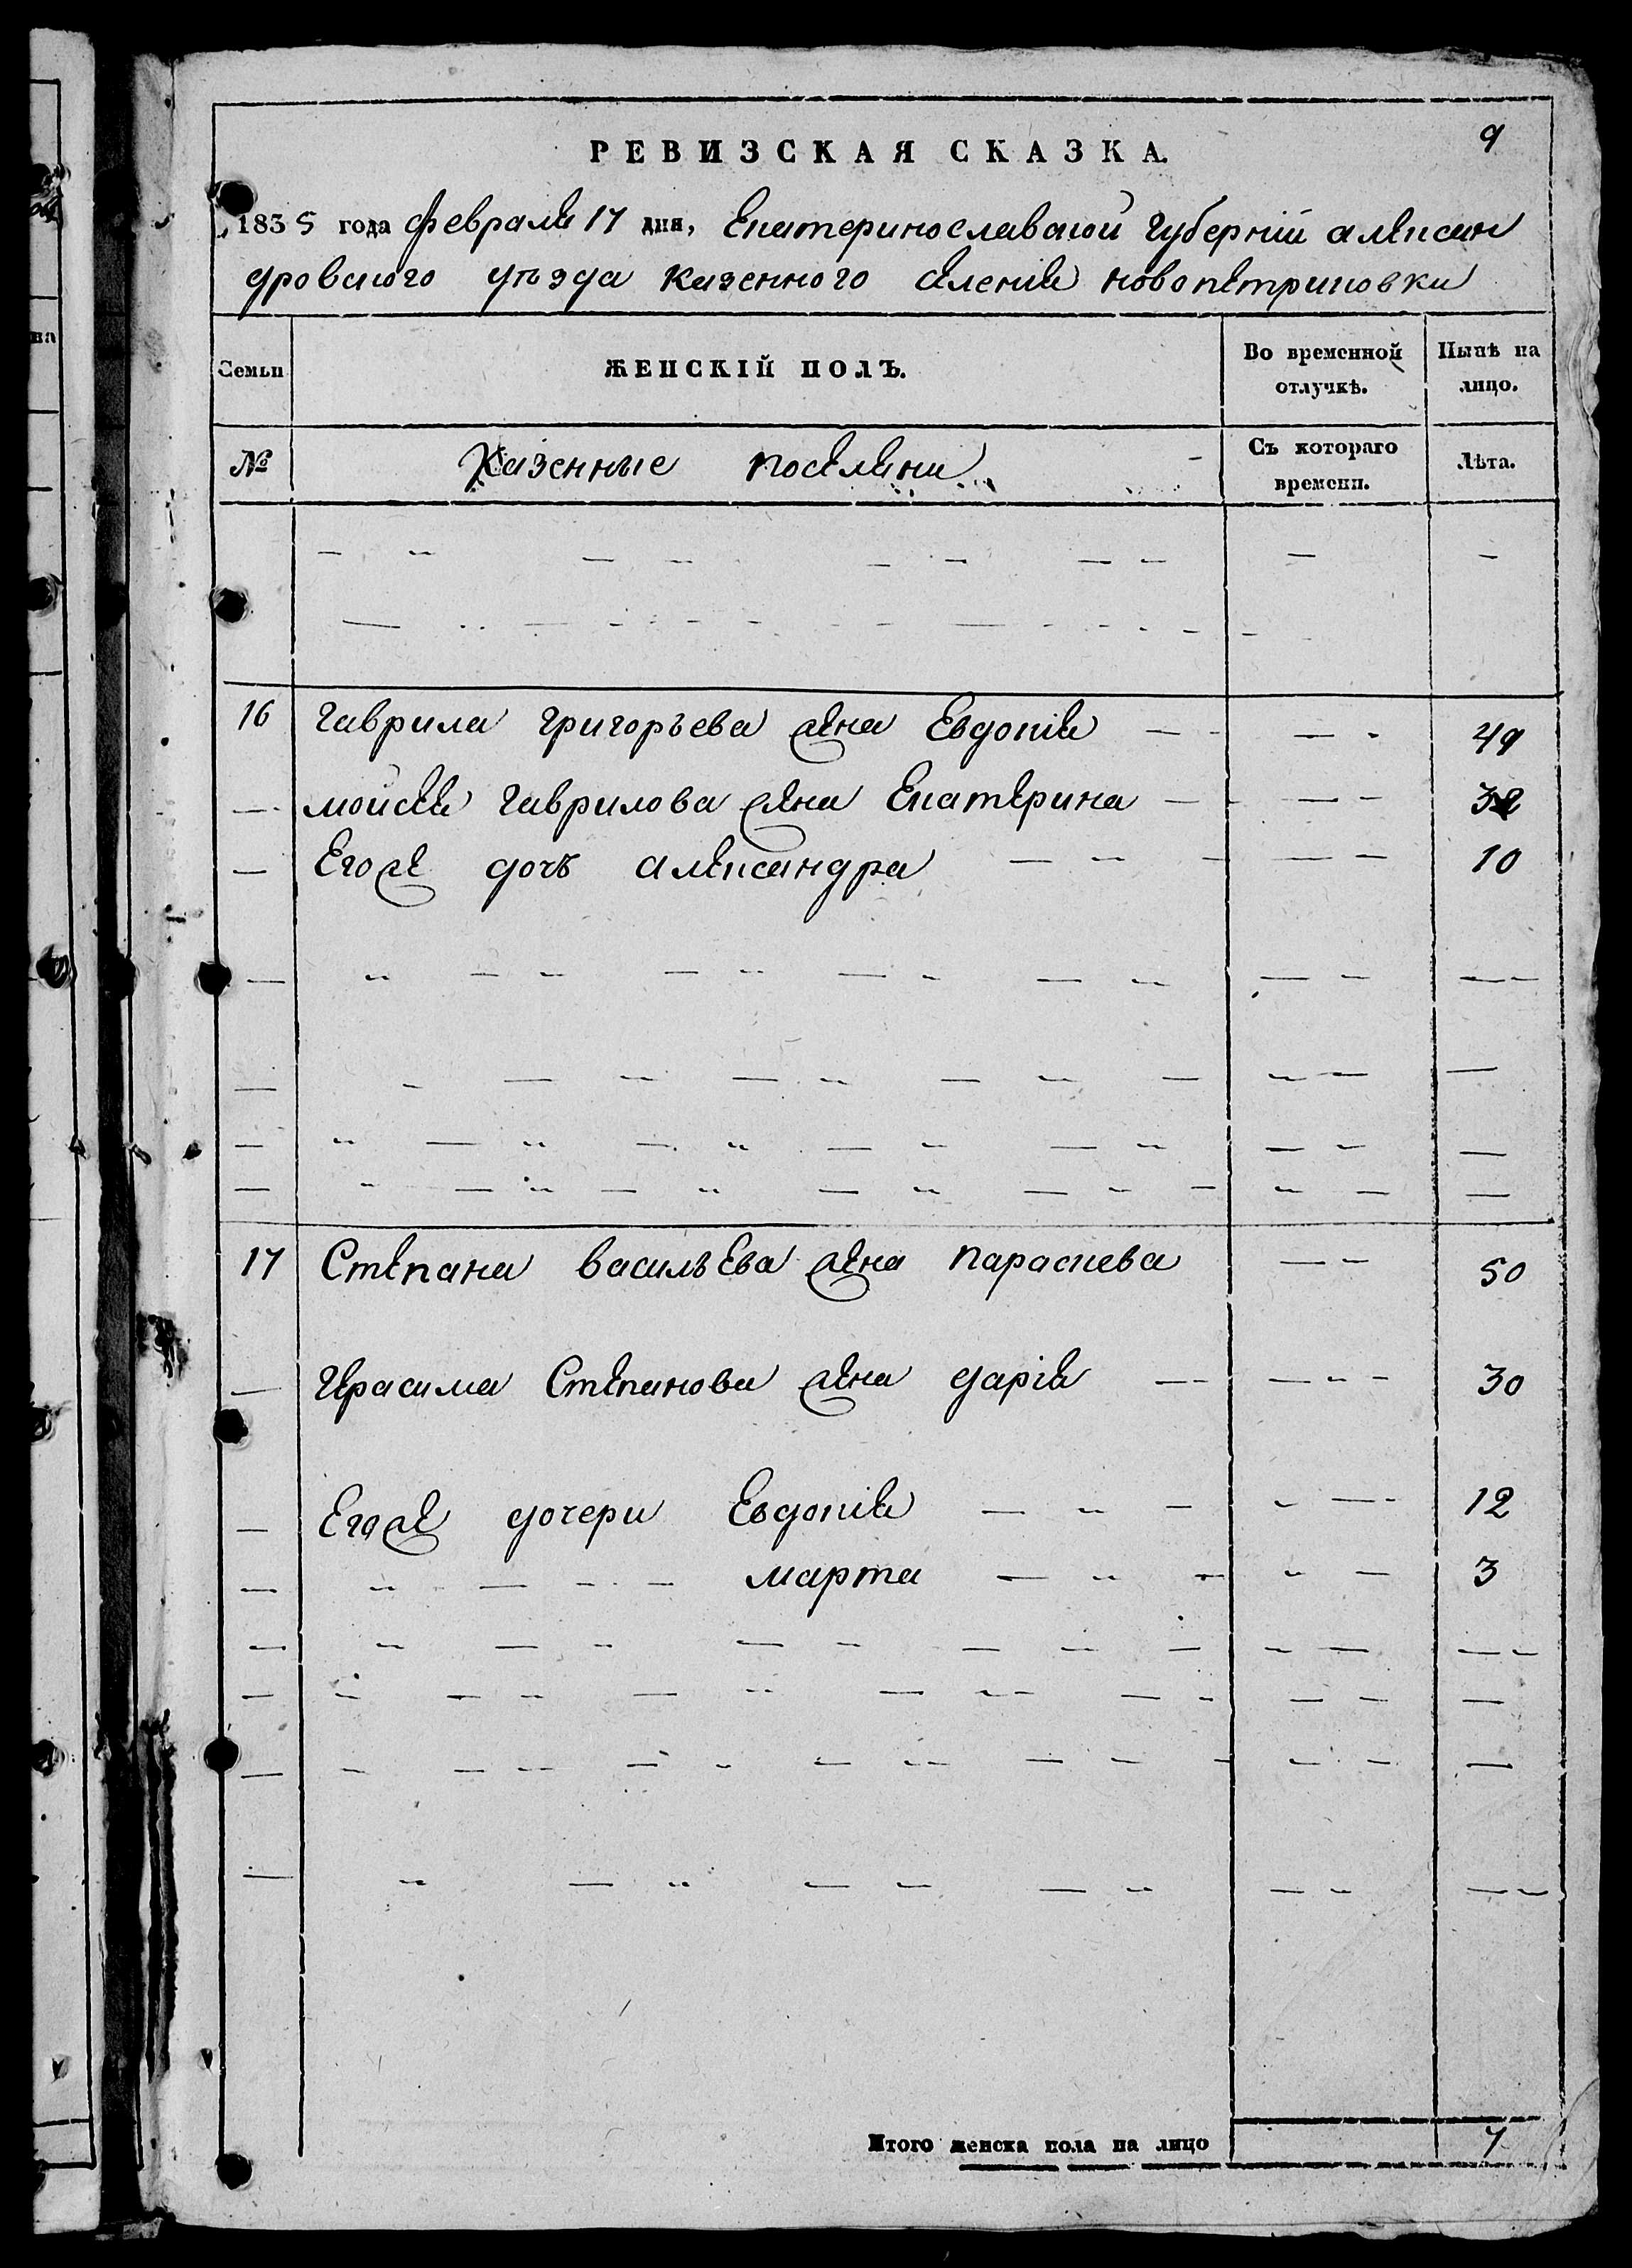 9
РЕВИЗСКАЯ СКАЗКА.
1835 года февраля 17 дня, Екатеринославской Губерніи алексан
дровского уѣзда казенного селенія новопетриковки
Семьи ЖЕНСКІЙ ПОЛЪ. Во временной отлучкѣ. Нынѣ на лицо.
№ Казенные поселяни Съ котораго времени. Лѣта.
16 гаврила григорьева жена Евдокія 49
моисея гаврилова жена Екатерина 32
Егоже дочь александра 10
17 Степана васильева жена параскева 50
герасима Степанова жена дарія 30
Егоже дочери Евдокія 12
марта 3
Итого женска пола на лицо 7
на